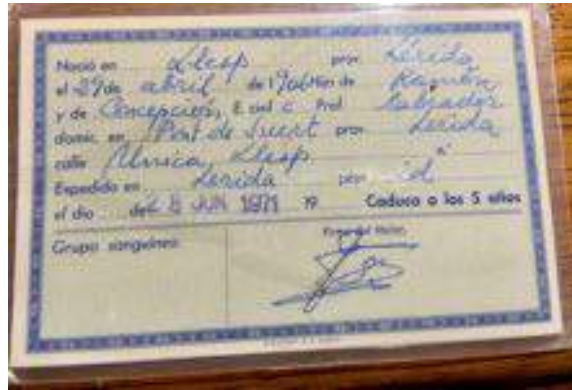 Nació en Llesp prov Lérida
el 29 de abril de 1906 Hijo de Ramón
y de Concepción, E. civil C Prof. Labrador
domic. en Pont de Suert prov Lerida
calle Unica, Llesp
Expedido en Lerida prov id"
el día de 28 JUN 1971 19 Caduca a los 5 años
Grupo sanguíneo: Firma del titular,